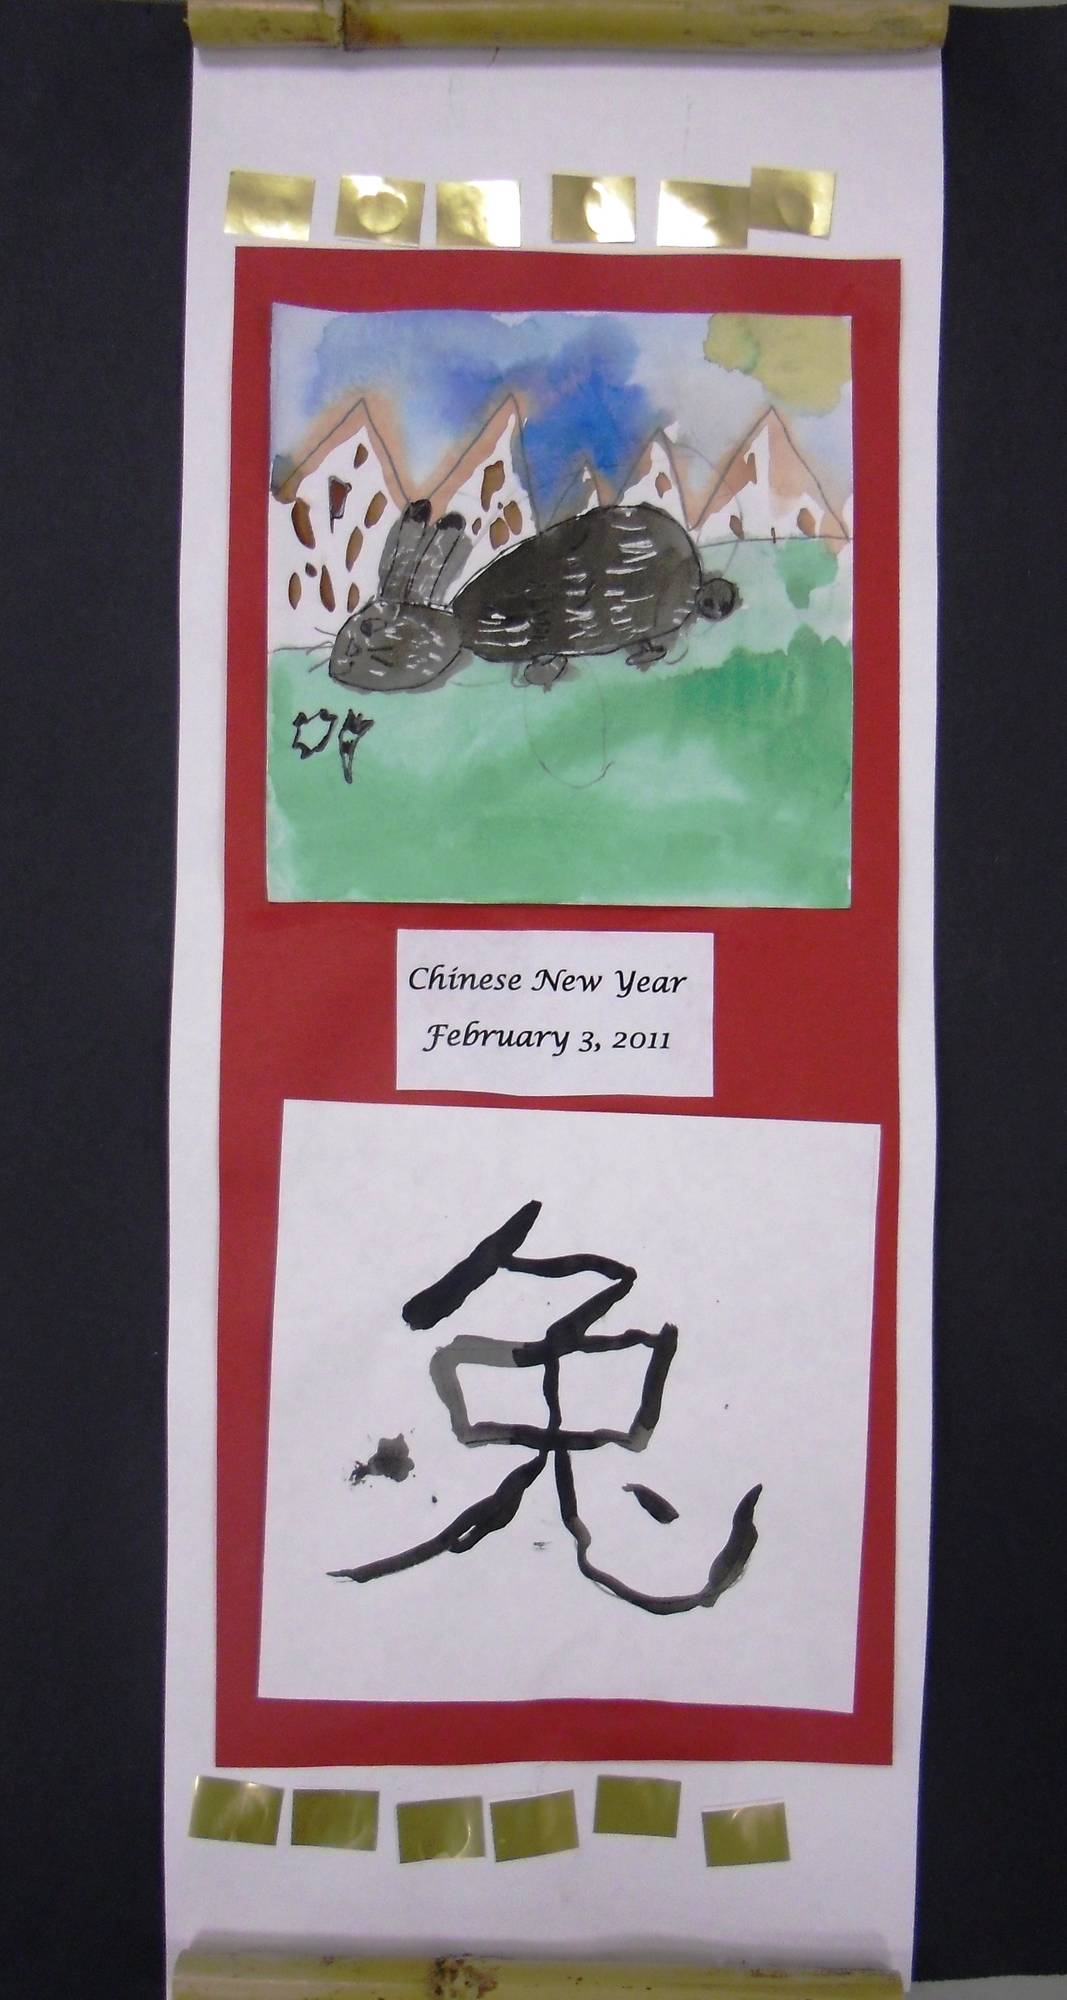 Chinese New Year
February 3, 2011
兔